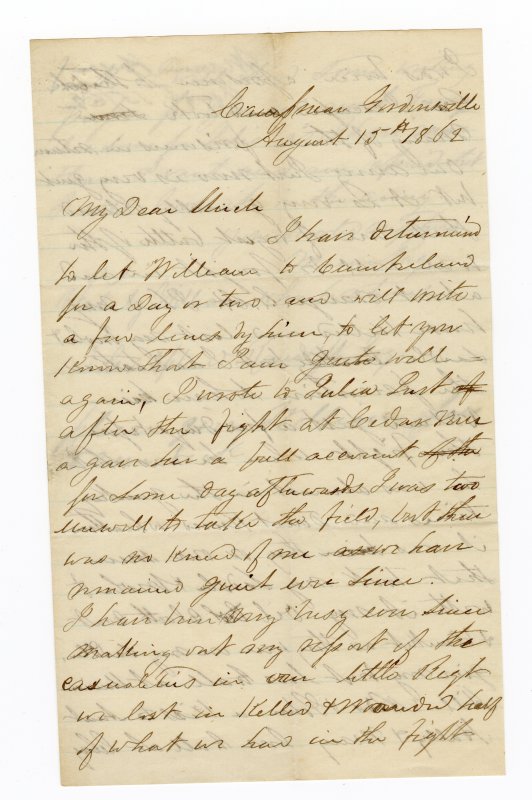 Camp near Gordonsville
August 15th 1862
My Dear Uncle
I have determin'd
to let William to Cumberland
for a day or two and will write
a few lines by him, to let you
know that I am quite well
again, I wrote to Julia Just of
after the fight at Cedar run
a gave her a full account of the
for some day afterwards I was two
unwell to take the field, but there
was no kneed of me as we have
remained quiet ever since.
I have been very busy ever since
making out my report of the
casualties in our little Regt
we lost in Killed & Wounded half
of what we had in the fight